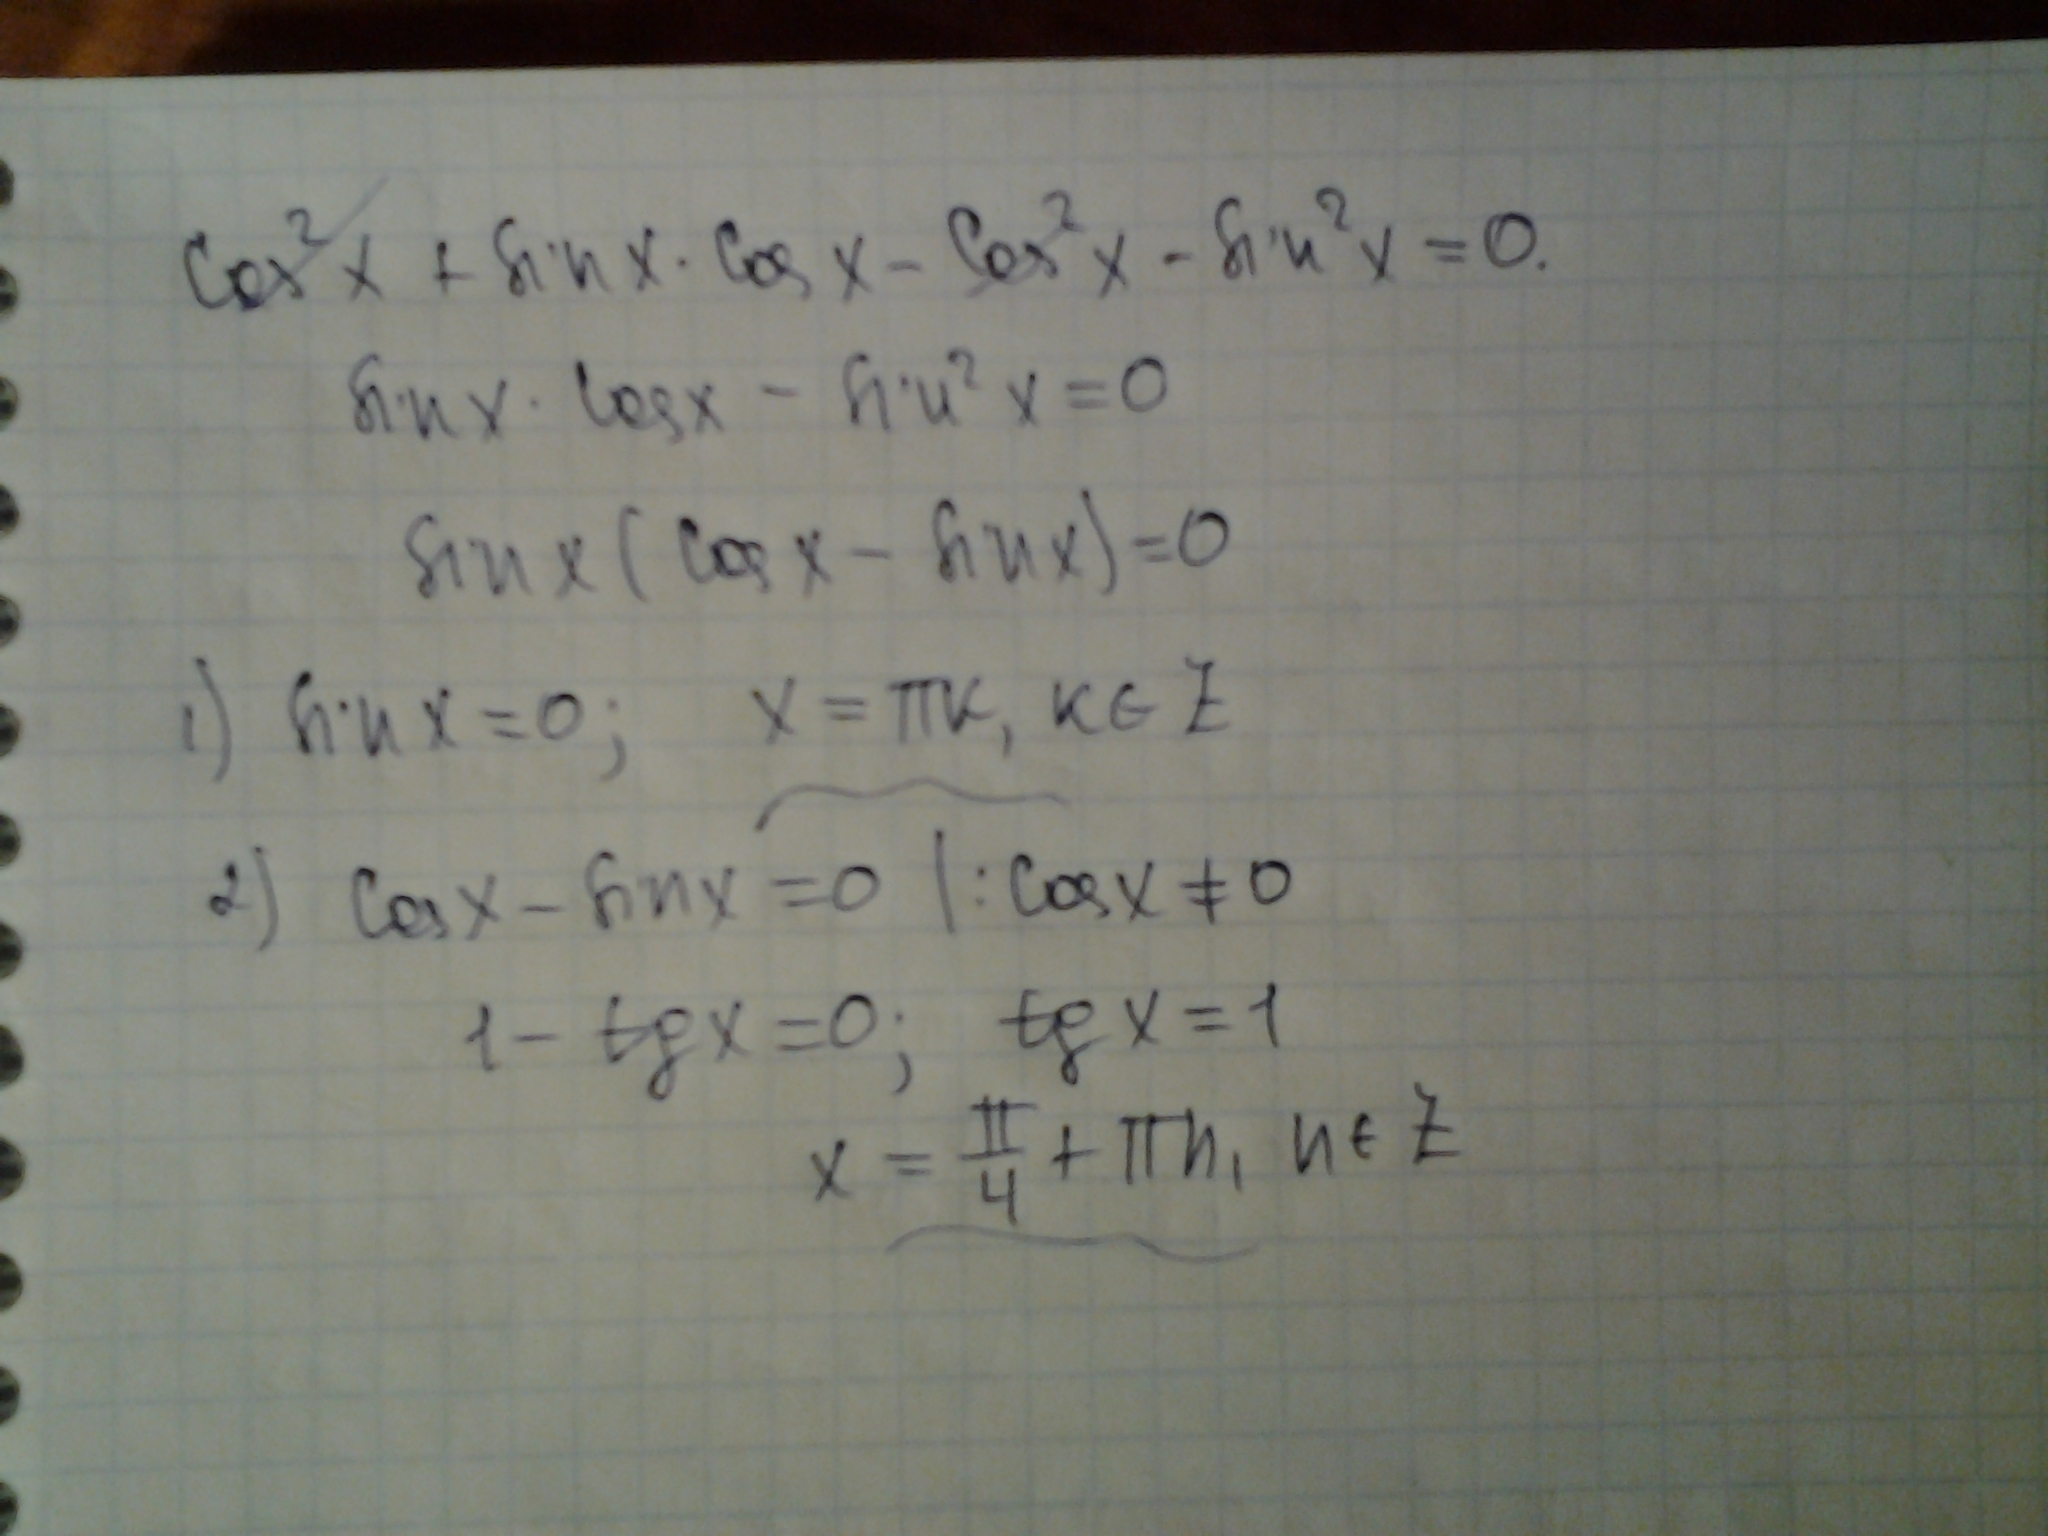 cos²x + sin x · cos x - cos²x - sin²x = 0.
sin x · cos x - sin²x = 0
sin x (cos x - sin x) = 0
1) sin x = 0; x = πk, k ∈ Z
2) cos x - sin x = 0 | : cos x ≠ 0
1 - tg x = 0; tg x = 1
x = π/4 + πn, n ∈ Z